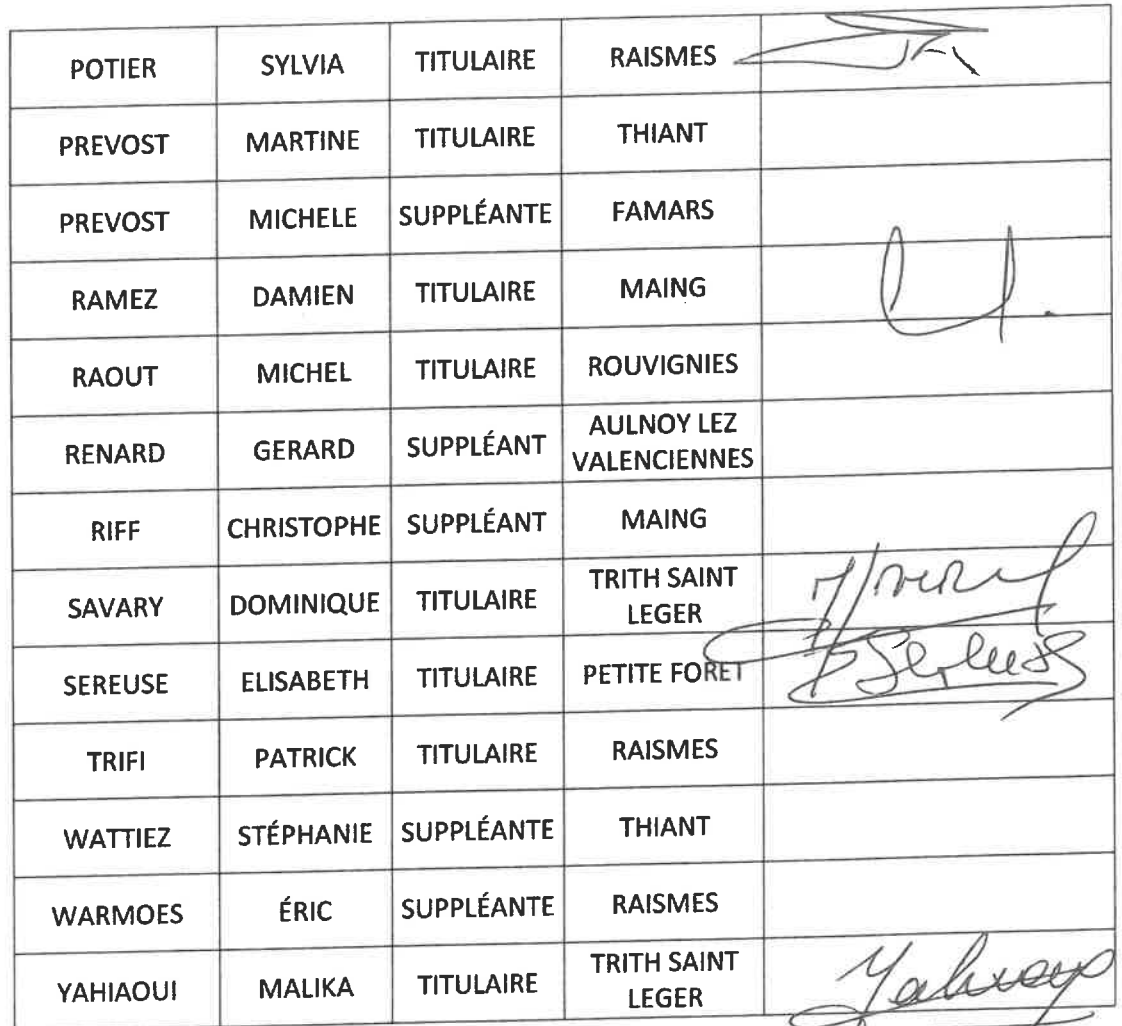 POTIER SYLVIA TITULAIRE RAISMES
PREVOST MARTINE TITULAIRE THIANT
PREVOST MICHELE SUPPLÉANTE FAMARS
RAMEZ DAMIEN TITULAIRE MAING
RAOUT MICHEL TITULAIRE ROUVIGNIES
RENARD GERARD SUPPLÉANT AULNOY LEZ
VALENCIENNES
RIFF CHRISTOPHE SUPPLÉANT MAING
SAVARY DOMINIQUE TITULAIRE TRITH SAINT
LEGER
SEREUSE ELISABETH TITULAIRE PETITE FORET
TRIFI PATRICK TITULAIRE RAISMES
WATTIEZ STÉPHANIE SUPPLÉANTE THIANT
WARMOES ÉRIC SUPPLÉANTE RAISMES
YAHIAOUI MALIKA TITULAIRE TRITH SAINT
LEGER